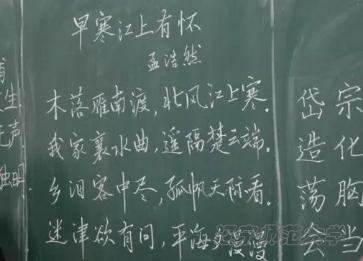 早寒江上有怀
孟浩然
木落雁南渡，北风江上寒。
我家襄水曲，遥隔楚云端。
乡泪客中尽，孤帆天际看。
迷津欲有问，平海夕漫漫
生
声
岱宗
造化
荡胸
会当